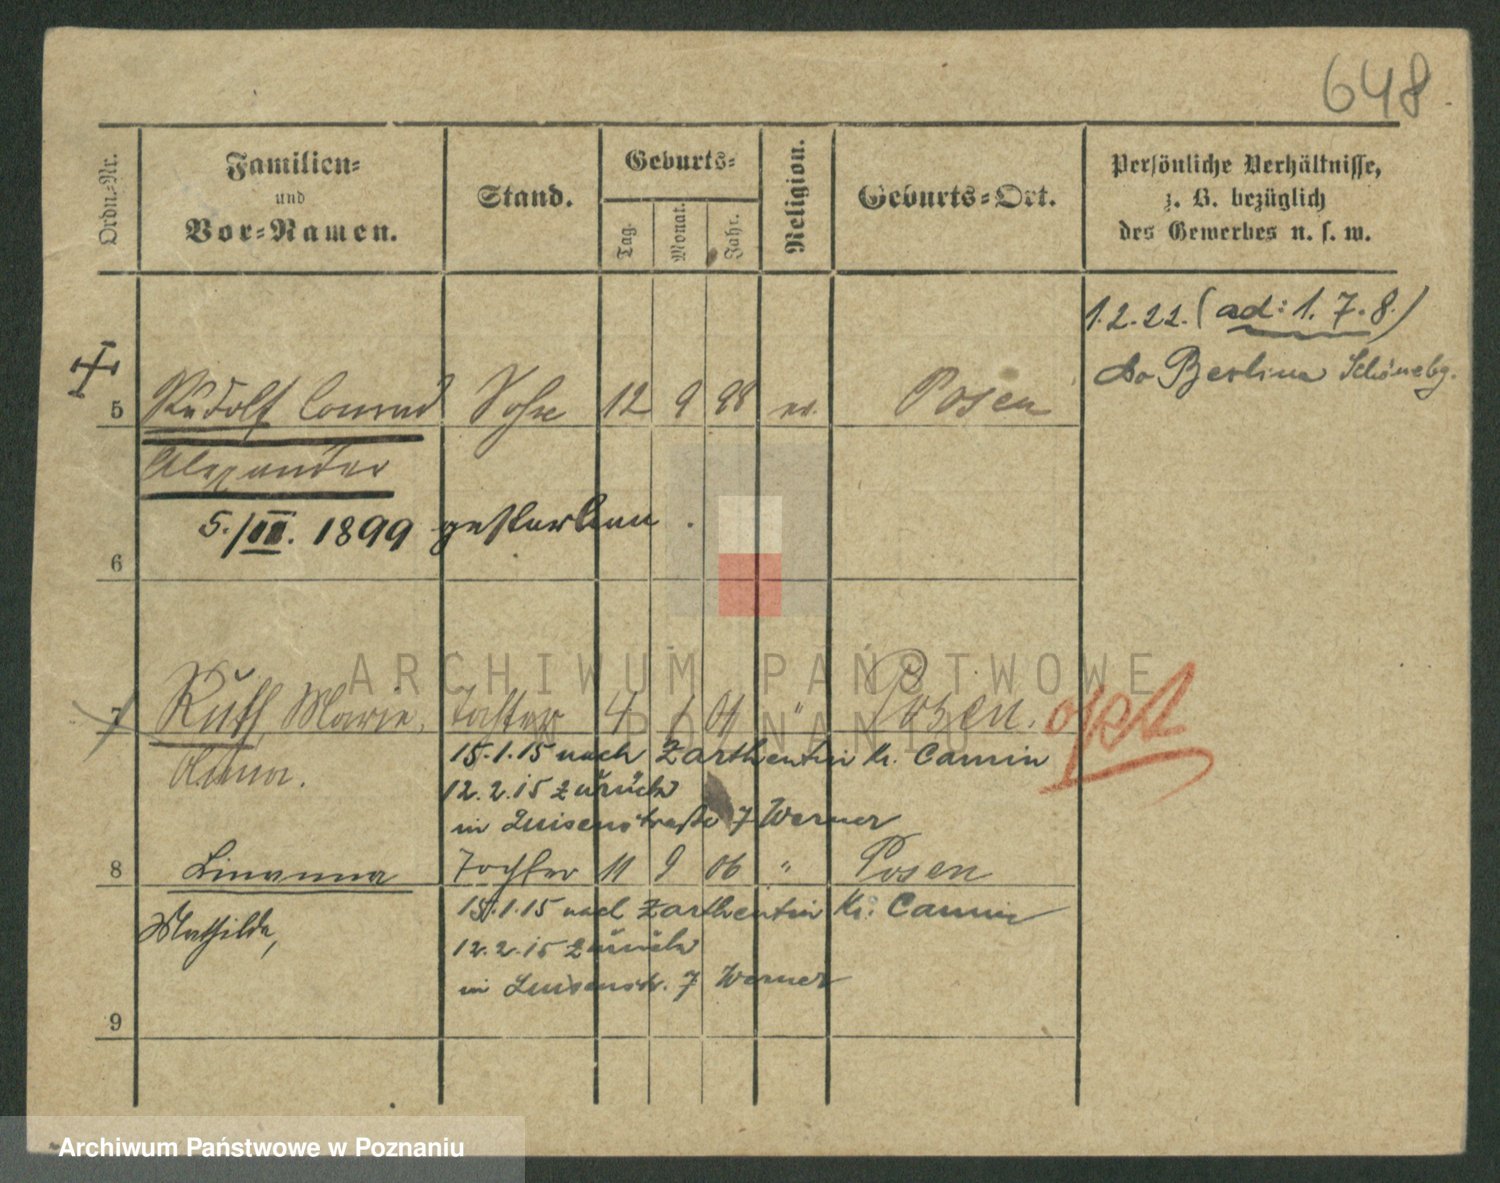 648
Ordn.-Nr.
Familien-
und
Vor-Namen.
Stand.
Geburts-
Tag.
Monat.
Jahr.
Religion.
Geburts-Ort.
Persönliche Verhältnisse,
z. B. bezüglich
des Gewerbes u. s. w.
1.2.22. (ad: 1. 7. 8.)
Berlin Schönebg.
5 Rudolf Conrad Sohn 12 9 98 ev. Posen
Alexander
5./III. 1899 gestorben.
6
7 Ruth, Marie, Tochter 4 1 01 " Posen.
Anna.
15.1.15 nach Zarthentin Kr. Camin
12.2.15 zurück
in Luisenstraße 7 Werner
8 Tochter 11 9 06 " Posen
Mathilde,
15.1.15 nach Zarthentin Kr. Camin
12.2.15 zurück
in Luisenstr. 7 Werner
9
ARCHIWUM PAŃSTWOWE
W POZNANIU
Archiwum Państwowe w Poznaniu